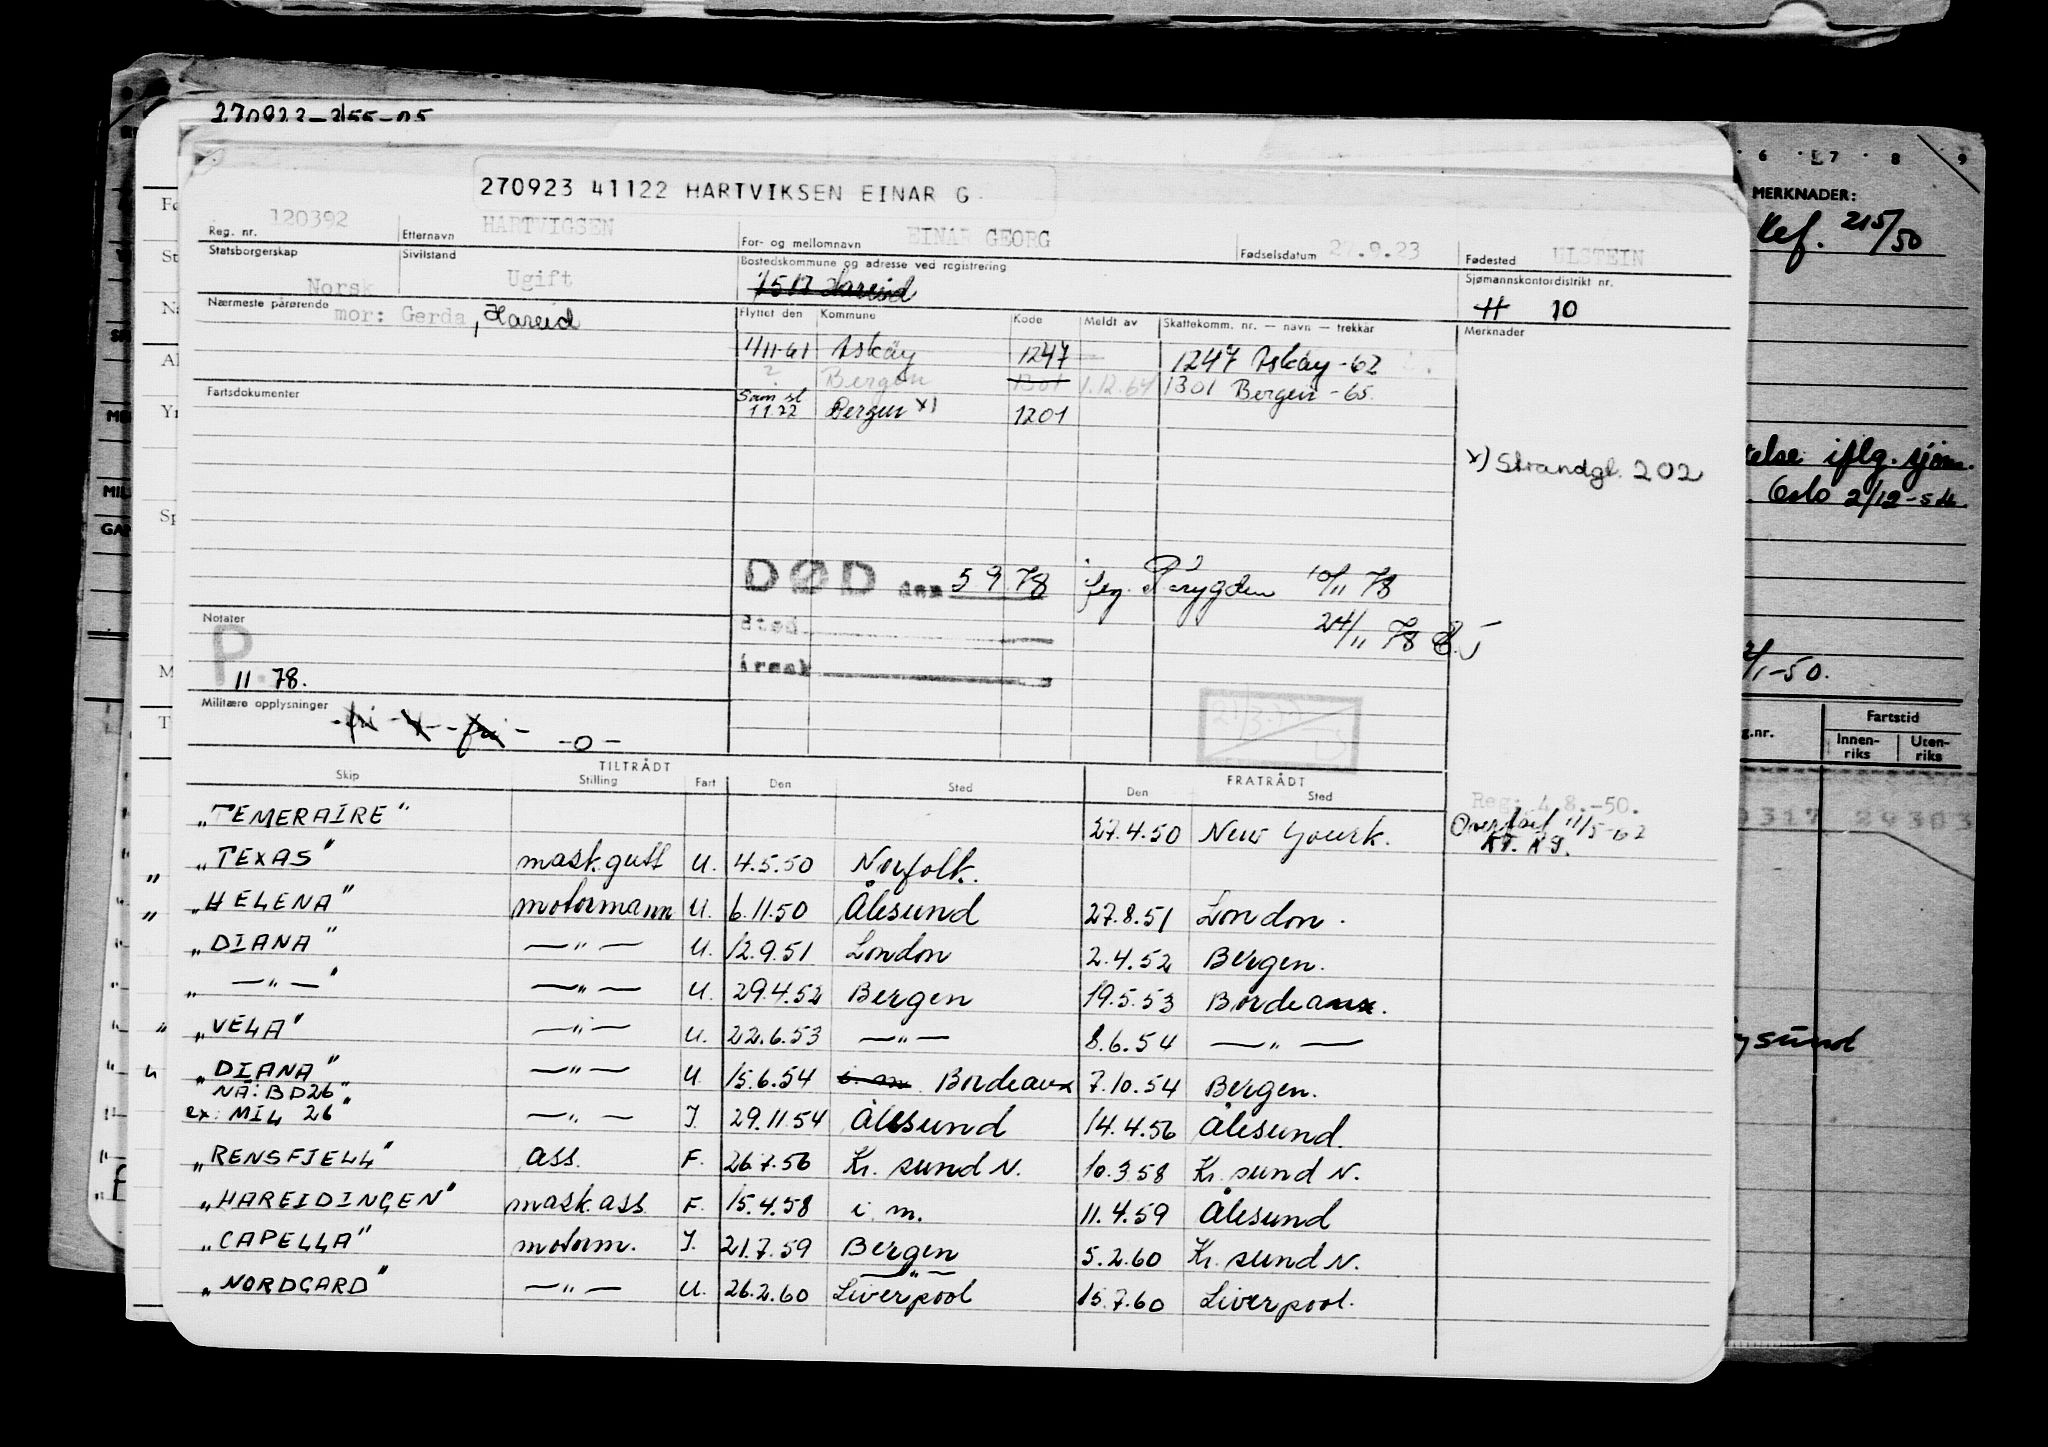 270923 41122 HARTVIKSEN EINAR G
Reg. nr. 120392 Etternavn HARTVIGSEN For- og mellomnavn EINAR GEORG Fødselsdatum 27.9.23 Fødested ULSTEIN
Statsborgerskap Norsk Sivilstand Ugift Bostedskommune og adresse ved registrering 1517 Hareid Sjømannskontordistrikt nr. 10
Nærmeste pårørende mor: Gerda, Hareid
Flyttet den Kommune Kode Meldt av Skattekomm. nr. — navn — trekkår Merknader
1/11-61 Askøy 1247 1247 Askøy -62
? Bergen 1301 1.12.64 1301 Bergen -65.
Fartsdokumenter
11.72 Bergen x) 1201
x) Strandgt. 202
DØD den 5 9 78 10/11 78
sted
24/11 78
årsak
Notater
P
11.78.
Militære opplysninger
-fri - -fri - -0-
TILTRÅDT FRATRÅDT
Skip Stilling Fart Den Sted Den Sted
Reg: 4.8.-50.
„TEMERAIRE" 27.4.50 New Yourk. Overført 11/5-62
„TEXAS" mask.gutt U. 4.5.50 Norfolk.
„HELENA" motormann U. 6.11.50 Ålesund 27.8.51 London.
„DIANA" —"— U. 12.9.51 London 2.4.52 Bergen.
„ —"— " —"— U. 29.4.52 Bergen 19.5.53 Bordeaux.
„VELA" —"— U. 22.6.53 —"— 8.6.54 —"—
„DIANA" —"— U. 15.6.54 Bordeaux 7.10.54 Bergen.
NÅ: BD26"
ex: MIL 26" —"— I. 29.11.54 Ålesund 14.4.56 Ålesund.
„RENSFJELL" ass. F. 26.7.56 Kr. sund N. 10.3.58 Kr. sund N.
„HAREIDINGEN" mask.ass F. 15.4.58 i. m. 11.4.59 Ålesund
„CAPELLA" motorm. I. 21.7.59 Bergen 5.2.60 Kr. sund N.
„NORDGARD" —"— U. 26.2.60 Liverpool 15.7.60 Liverpool.
6 7 8 9
MERKNADER:
215/50
iflg. sjøm.
Oslo 2/12-54
/1-50.
Fartstid
Innen-riks Uten-riks